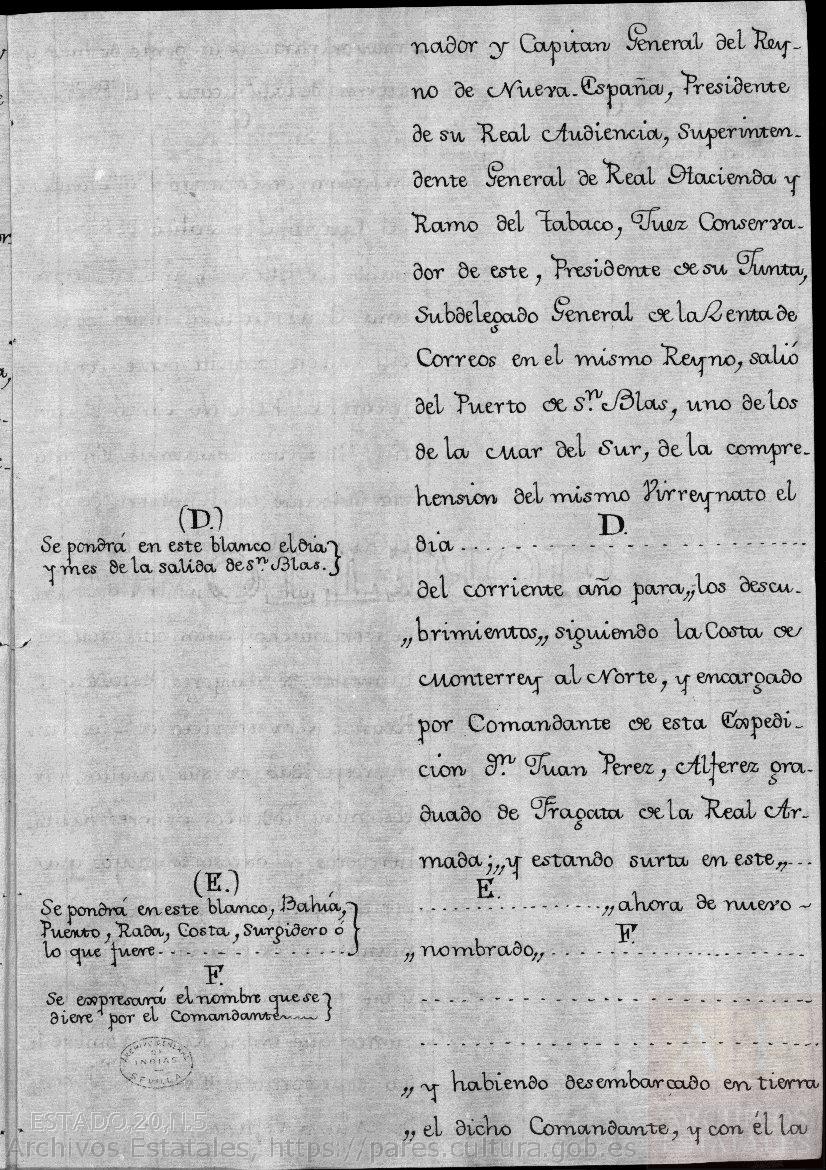 nador y Capitan General del Rey-
no de Nueva-España, Presidente
de su Real Audiencia, Superinten-
dente General de Real Hacienda y
Ramo del Tabaco, Juez Conserva-
dor de este, Presidente de su Junta,
Subdelegado General de la Renta de
Correos en el mismo Reyno, salió
del Puerto de Sn. Blas, uno de los
de la Mar del Sur, de la compre-
hension del mismo Virreynato el
D.
dia
del corriente año para „los descu-
„brimientos„ siguiendo la Costa de
Monterrey al Norte, y encargado
por Comandante de esta Expedi-
cion Dn. Juan Perez, Alferez gra-
duado de Fragata de la Real Ar-
mada; „y estando surta en este„
E.
„ahora de nuevo
„nombrado„ F.
„y habiendo desembarcado en tierra
„el dicho Comandante, y con él la
(D.)
Se pondrá en este blanco el dia
y mes de la salida de Sn. Blas.
(E.)
Se pondrá en este blanco, Bahía,
Puerto, Rada, Costa, Surgidero ó
lo que fuere
F.
Se expresará el nombre que se
diere por el Comandante
ARCHIVO GENERAL
DE
INDIAS
SEVILLA
ESTADO,20,N.5
Archivos Estatales, https://pares.cultura.gob.es